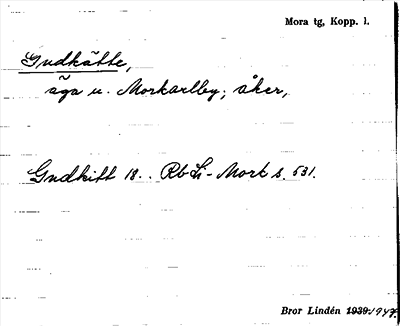 Mora tg, Kopp. l.
Gudkätte,
äga u. Morkarlby; åker,
Gudkitt 18.. RbLi-Mork s. 531.
Bror Lindén 1939. 1947.